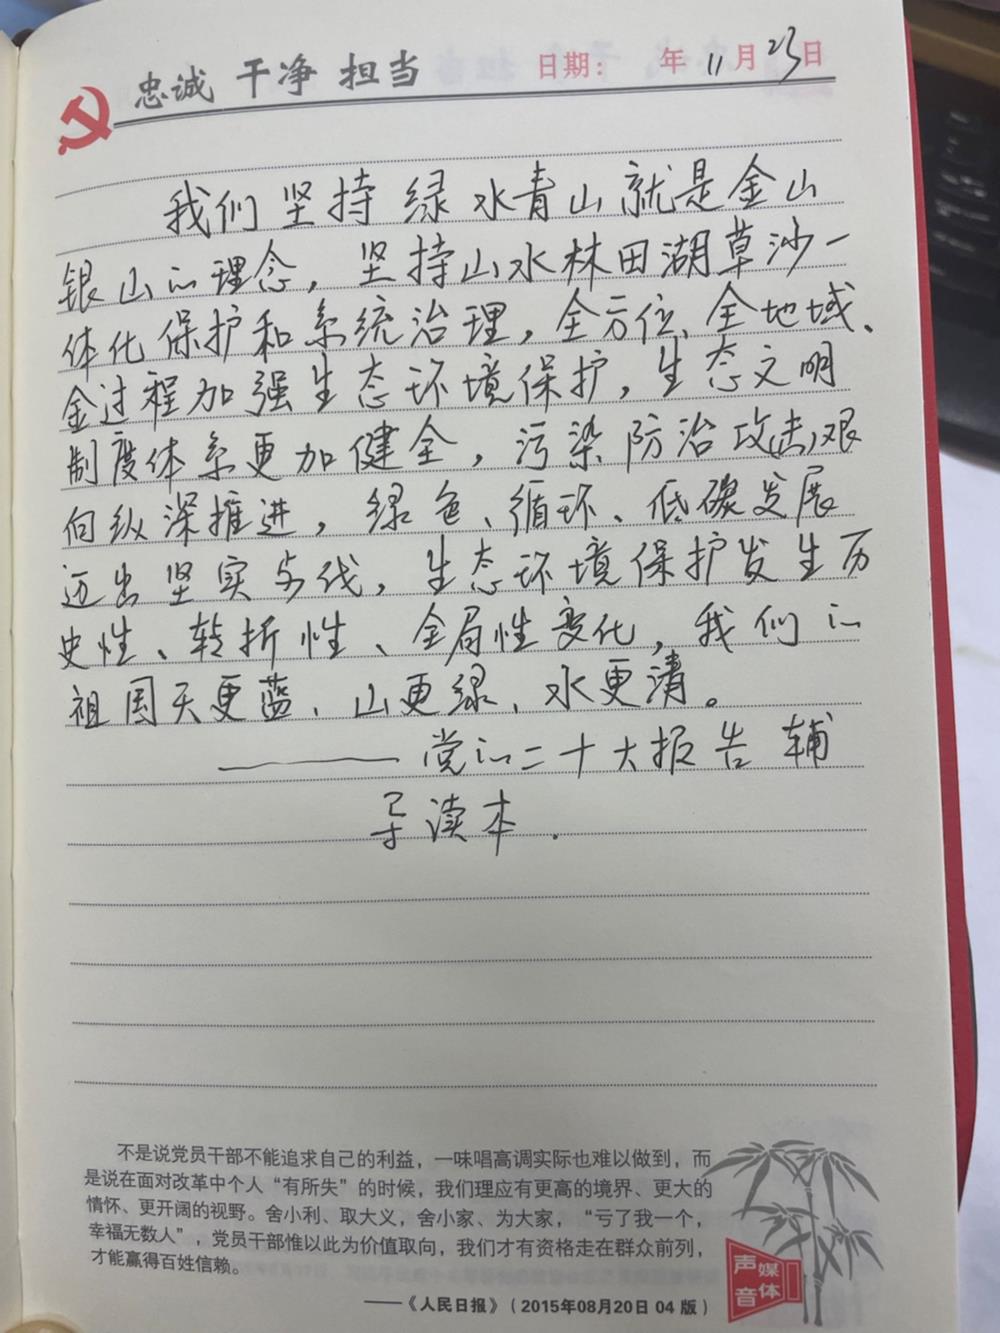 忠诚 干净 担当 日期： 年 11月23日
我们坚持绿水青山就是金山
银山的理念，坚持山水林田湖草沙一
体化保护和系统治理，全方位、全地域、
全过程加强生态环境保护，生态文明
制度体系更加健全，污染防治攻击艰
向纵深推进，绿色、循环、低碳发展
迈出坚实步伐，生态环境保护发生历
史性、转折性、全局性变化，我们的
祖国天更蓝、山更绿、水更清。
——党的二十大报告辅
导读本.
不是说党员干部不能追求自己的利益，一味唱高调实际也难以做到，而
是说在面对改革中个人“有所失”的时候，我们理应有更高的境界、更大的
情怀、更开阔的视野。舍小利、取大义，舍小家、为大家，“亏了我一个，
幸福无数人”，党员干部惟以此为价值取向，我们才有资格走在群众前列，
才能赢得百姓信赖。
——《人民日报》（2015年08月20日 04 版）
媒体
声音